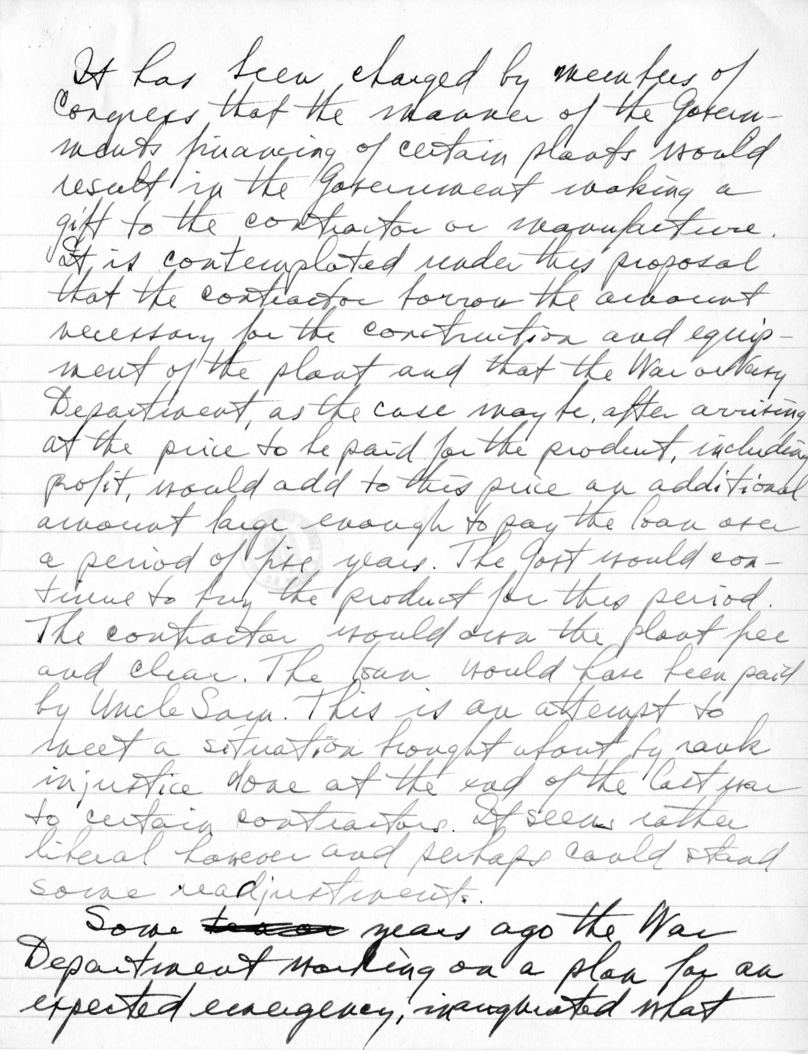 It has been charged by members of
Congress that the manner of the Govern-
ments financing of certain plants would
result in the Government making a
gift to the contractor or manufacture.
It is contemplated under this proposal
that the contractor borrow the amount
necessary for the construction and equip-
ment of the plant and that the War or Navy
Department, as the case may be, after arriving
at the price to be paid for the product, including
profit, would add to this price an additional
amount large enough to pay the loan over
a period of five years. The Govt would con-
tinue to buy the product for this period.
The contractor would own the plant free
and clear. The loan would have been paid
by Uncle Sam. This is an attempt to
meet a situation brought about by rank
injustice done at the end of the last war
to certain contractors. It seems rather
liberal however and perhaps could stand
some readjustments.
Some years ago the War
Department working on a plan for an
expected emergency, inaugurated what